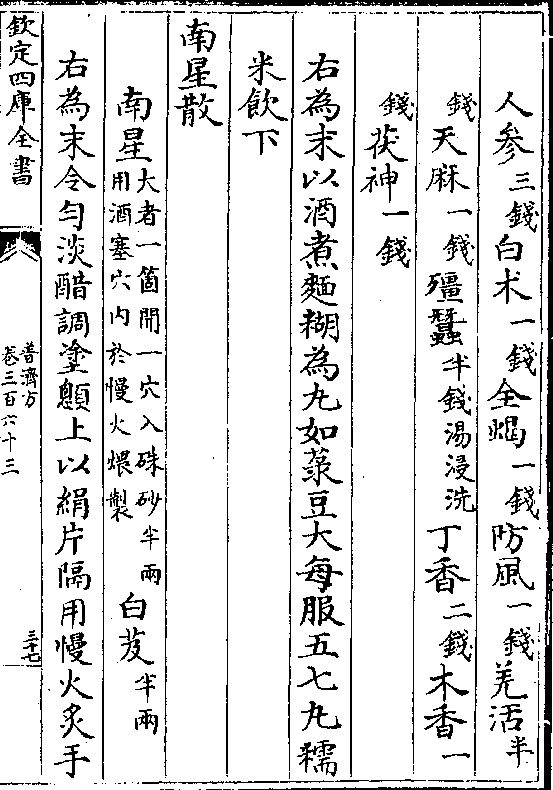 人參三錢白术一錢全蝎一錢防風一錢羌活半
錢天麻一錢殭蠶半錢湯浸洗丁香二錢木香一
錢茯神一錢
右為末以酒煮麵糊為丸如菉豆大每服五七丸糯
米飲下
南星散
南星大者一箇開一穴入硃砂半兩用酒塞穴内於慢火煨製白芨半兩
右為末令勻淡醋調塗顖上以絹片隔用慢火炙手
欽定四庫全書
普濟方
卷三百六十三
三十七